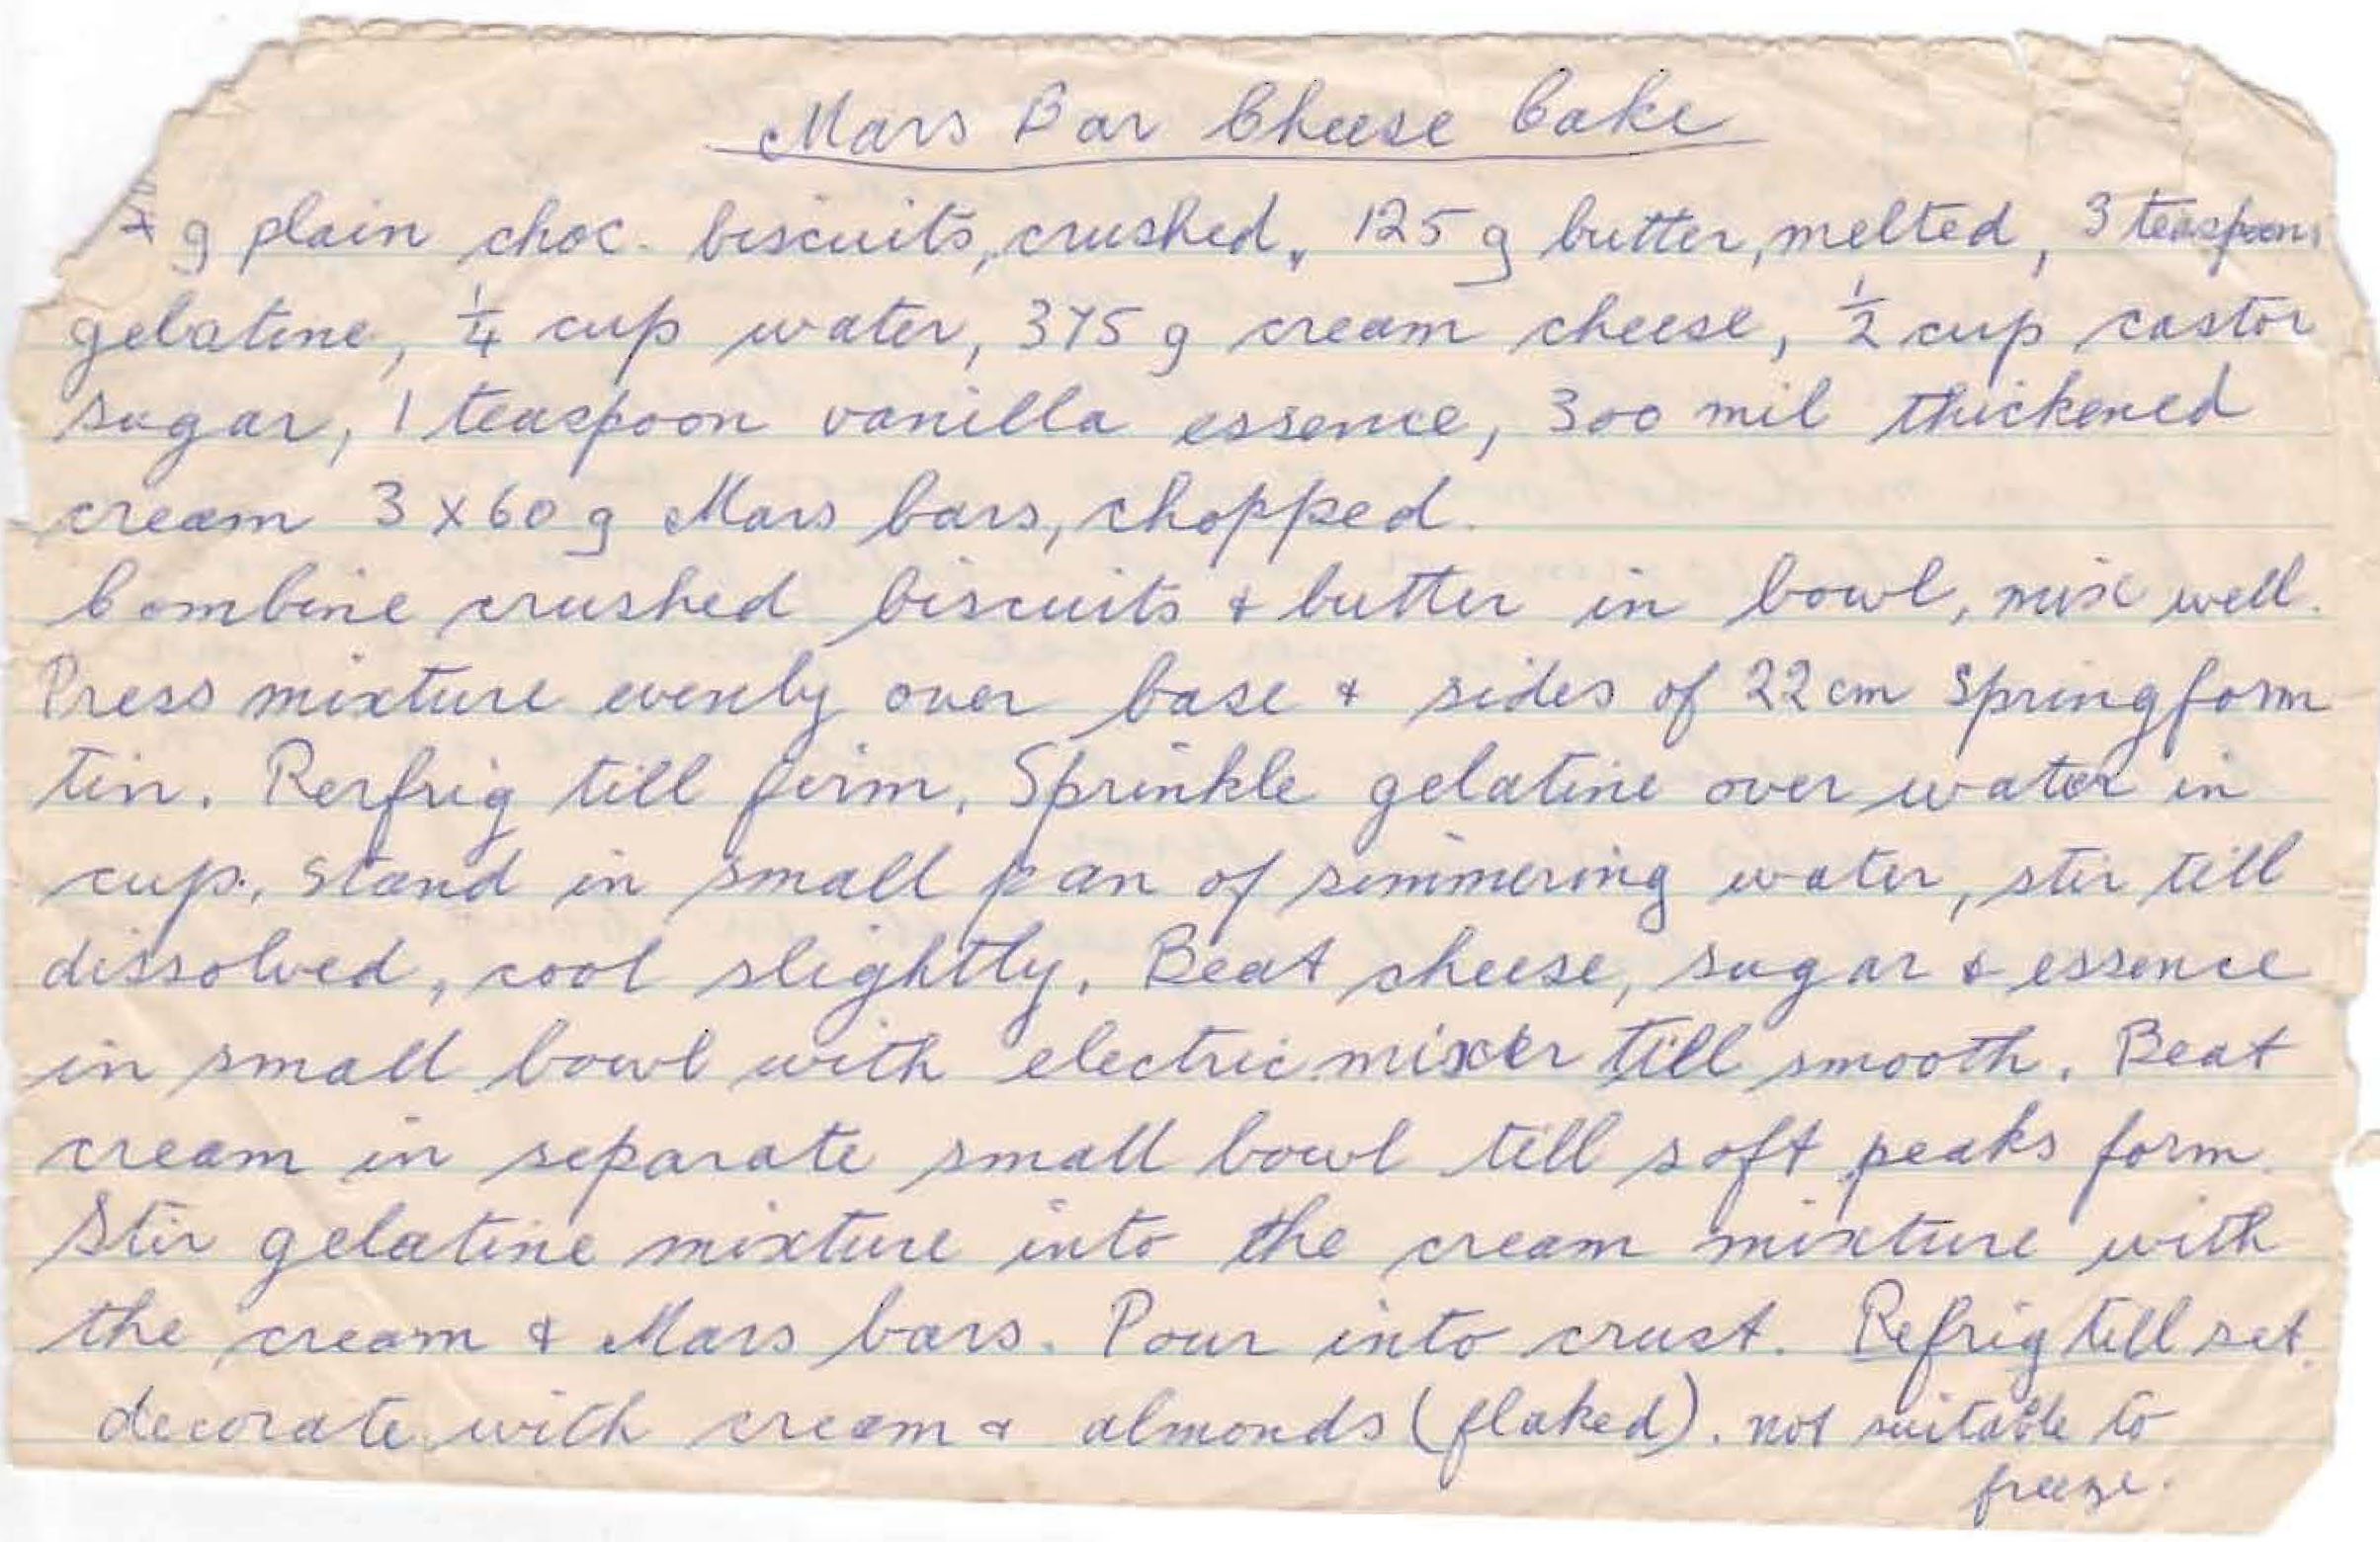 Mars Bar Cheese Cake
g plain choc. biscuits, crushed, 125 g butter, melted, 3 teaspoons
gelatine, 1/4 cup water, 375 g cream cheese, 1/2 cup castor
sugar, 1 teaspoon vanilla essence, 300 mil thickened
cream 3 x 60 g Mars bars, chopped.
Combine crushed biscuits & butter in bowl, mix well.
Press mixture evenly over base & sides of 22 cm Springform
tin. Rerfrig till firm. Sprinkle gelatine over water in
cup, stand in small pan of simmering water, stir till
dissolved, cool slightly. Beat cheese, sugar & essence
in small bowl with electric mixer till smooth. Beat
cream in separate small bowl till soft peaks form.
Stir gelatine mixture into the cream mixture with
the cream & Mars bars. Pour into crust. Refrig till set.
decorate with cream & almonds (flaked). not suitable to
freeze.